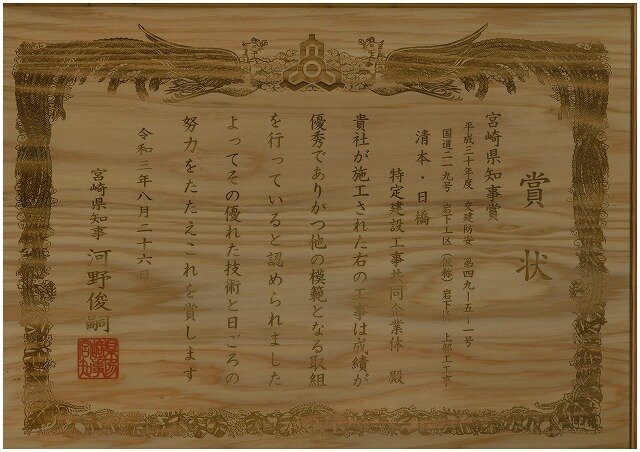 賞状
宮崎県知事賞
平成三十年度 交建防安 第四九-五-一号
国道二一九号 岩下工区(仮称)岩下橋 上部工工事
清本・日橋
特定建設工事共同企業体 殿
貴社が施工された右の工事は成績が
優秀でありかつ他の模範となる取組
を行っていると認められました
よってその優れた技術と日ごろの
努力をたたえこれを賞します
令和三年八月二十六日
宮崎県知事 河野俊嗣